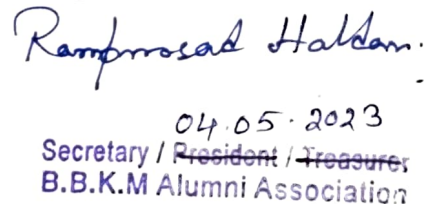 Ramprosad Haldar.
04.05.2023
Secretary / President / Treasurer
B.B.K.M Alumni Association